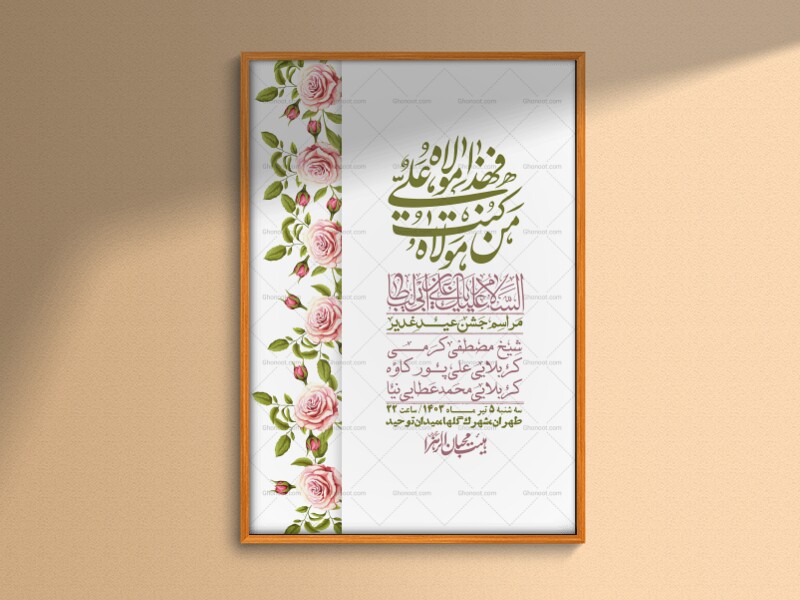 من کنت مولاه
فهذا مولاه علی
السلام علیک یا علی بن ابی طالب
مراسم جشن عید غدیر
شیخ مصطفی کرمی
کربلایی علی پور کاوه
کربلایی محمد عطایی نیا
سه شنبه ۵ تیر ماه ۱۴۰۳/ ساعت ۲۲
طهران، شهرک گلها، میدان توحید
هیئت محبان الزهرا
Ghonoot.com